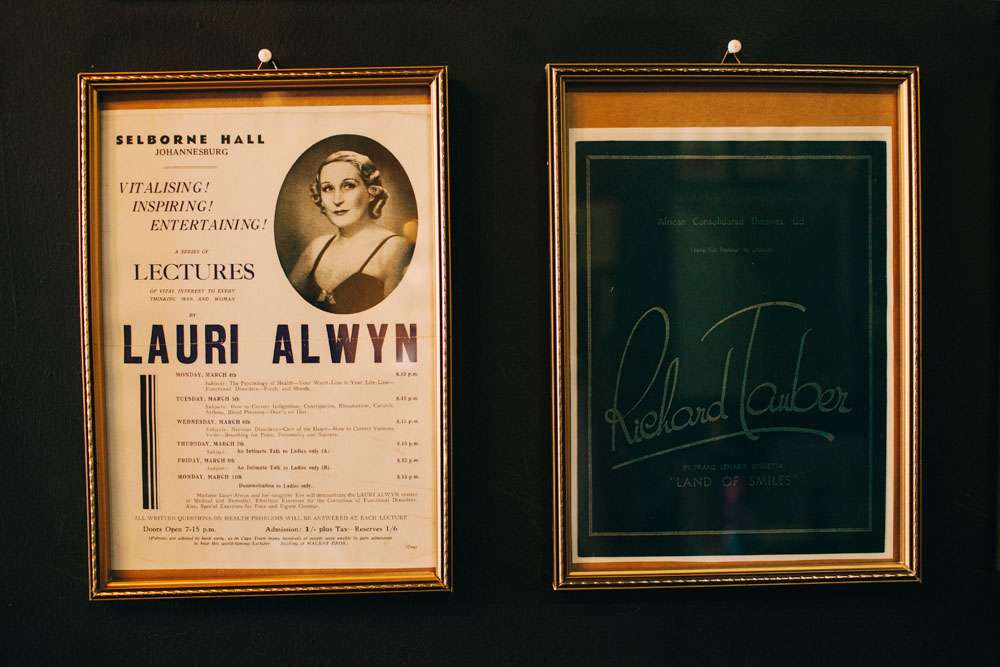 SELBORNE HALL
JOHANNESBURG
VITALISING!
INSPIRING!
ENTERTAINING!
A SERIES OF
LECTURES
OF VITAL INTEREST TO EVERY
THINKING MAN AND WOMAN
BY
LAURI ALWYN
MONDAY, MARCH 4th 8.15 p.m.
Subject: The Psychology of Health—Your Waist-Line is Your Life-Line—
Functional Disorders—Foods and Moods.
TUESDAY, MARCH 5th 8.15 p.m.
Subjects: How to Correct Indigestion, Constipation, Rheumatism, Catarrh,
Asthma, Blood Pressure—Don'ts on Diet.
WEDNESDAY, MARCH 6th 8.15 p.m.
Subjects: Nervous Disorders—Care of the Heart—How to Correct Varicose
Veins—Breathing for Poise, Personality and Success.
THURSDAY, MARCH 7th 8.15 p.m.
Subject: An Intimate Talk to Ladies only (A).
FRIDAY, MARCH 8th 8.15 p.m.
Subject: An Intimate Talk to Ladies only (B).
MONDAY, MARCH 11th 8.15 p.m.
Demonstration to Ladies only.
Madame Lauri Alwyn and her daughter will demonstrate the LAURI ALWYN system
of Medical and Remedial, Effortless Exercises for the Correction of Functional Disorders.
Also, Special Exercises for Poise and Figure Contour.
ALL WRITTEN QUESTIONS ON HEALTH PROBLEMS WILL BE ANSWERED AT EACH LECTURE
Doors Open 7-15 p.m. Admission: 1/- plus Tax—Reserves 1/6
(Patrons are advised to book early, as in Cape Town many hundreds of people were unable to gain admission
to hear this world-famous Lecturer. Booking at
African Consolidated Theatres Ltd
Richard Tauber
IN FRANZ LEHAR'S OPERETTA
"LAND OF SMILES"